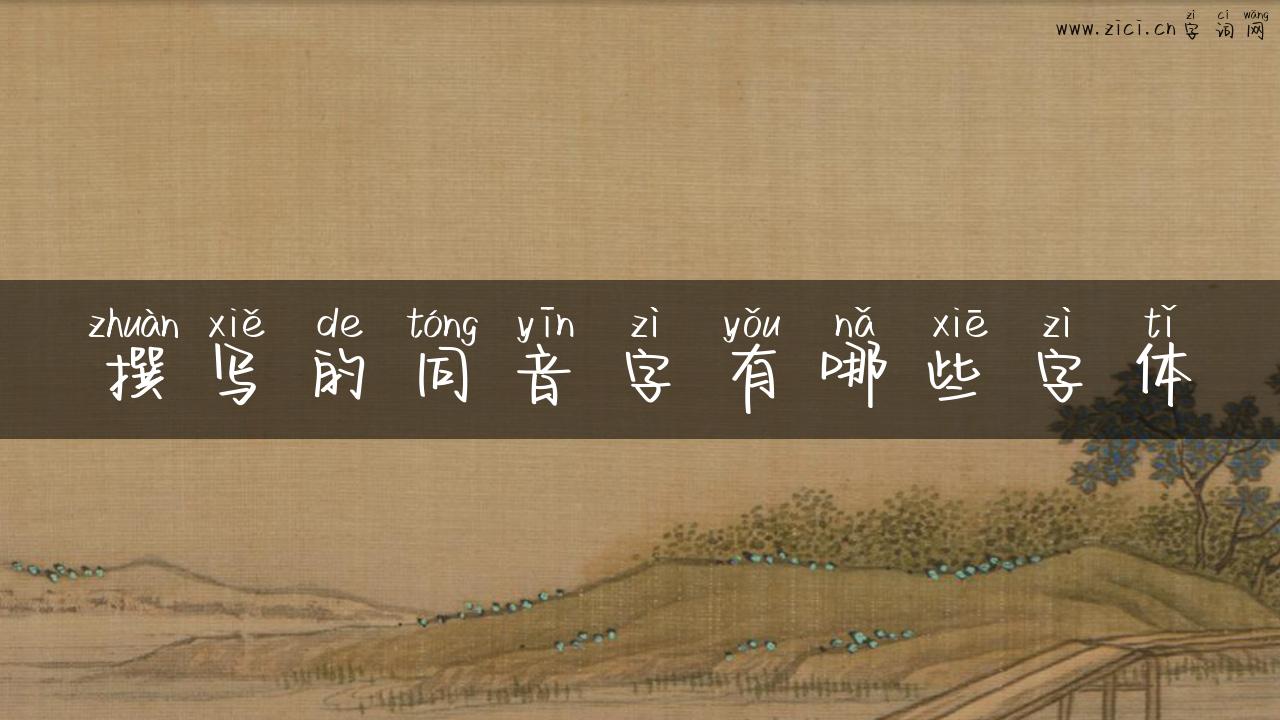 zì cí wǎng
www.zici.cn字词网
zhuàn xiě de tóng yīn zì yǒu nǎ xiē zì tǐ
撰写的同音字有哪些字体